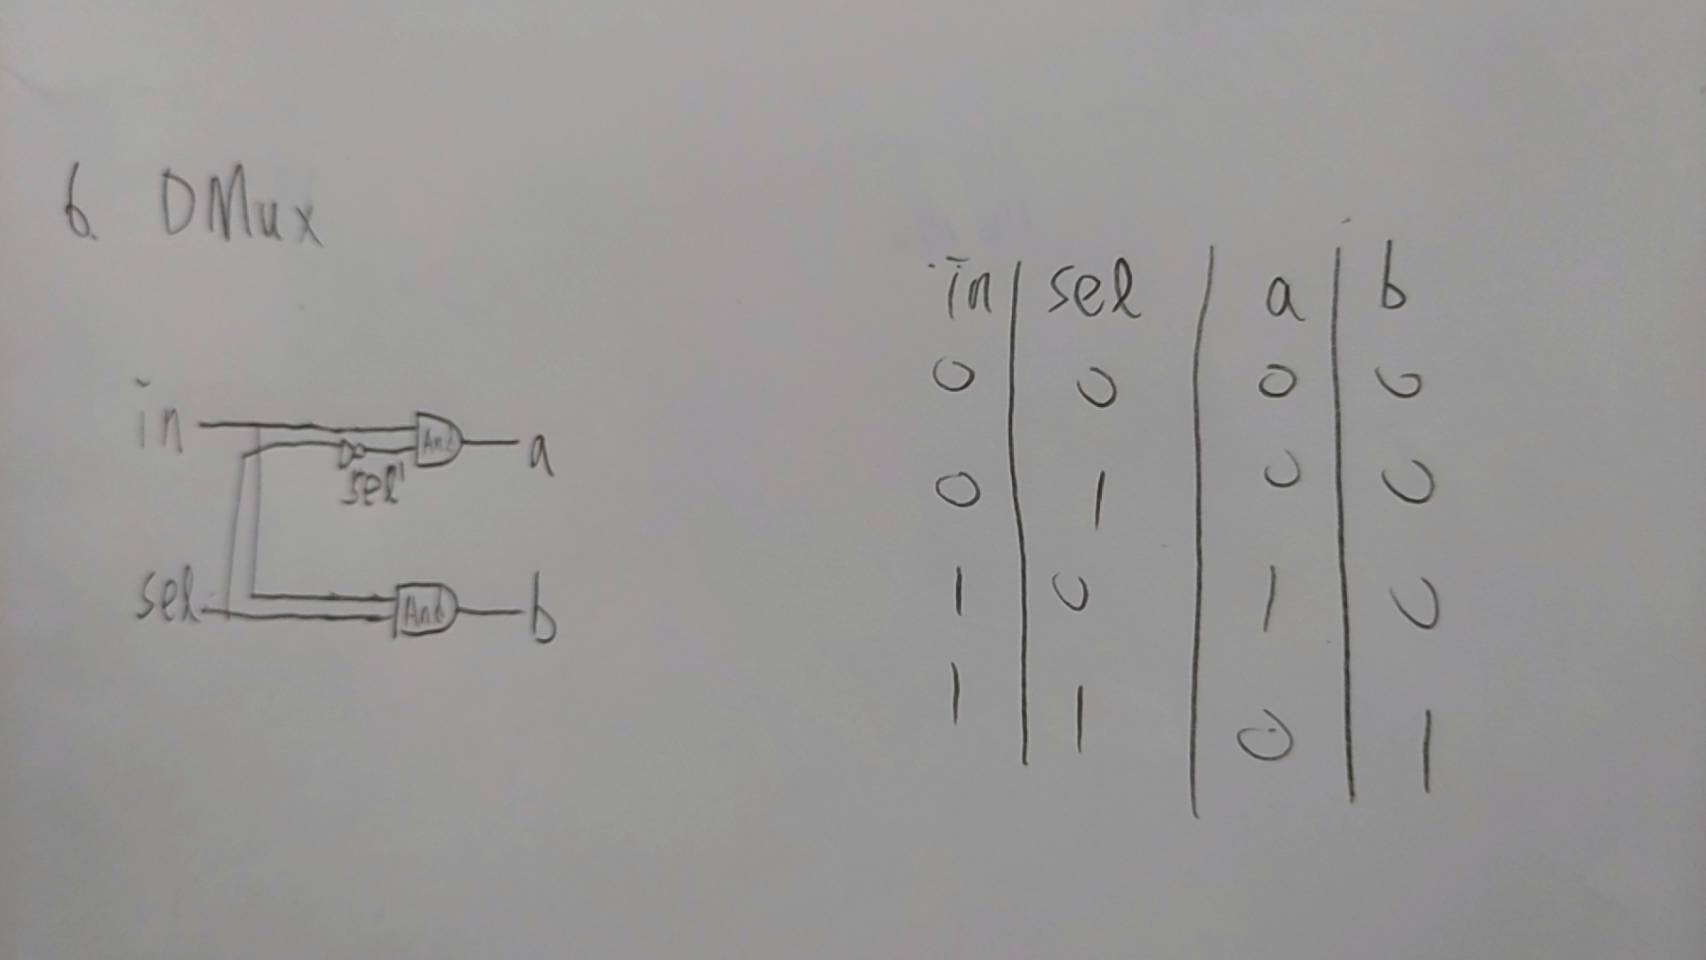 6. DMux
in And a
sel'
sel And b
in sel a b
0 0 0 0
0 1 0 0
1 0 1 0
1 1 0 1